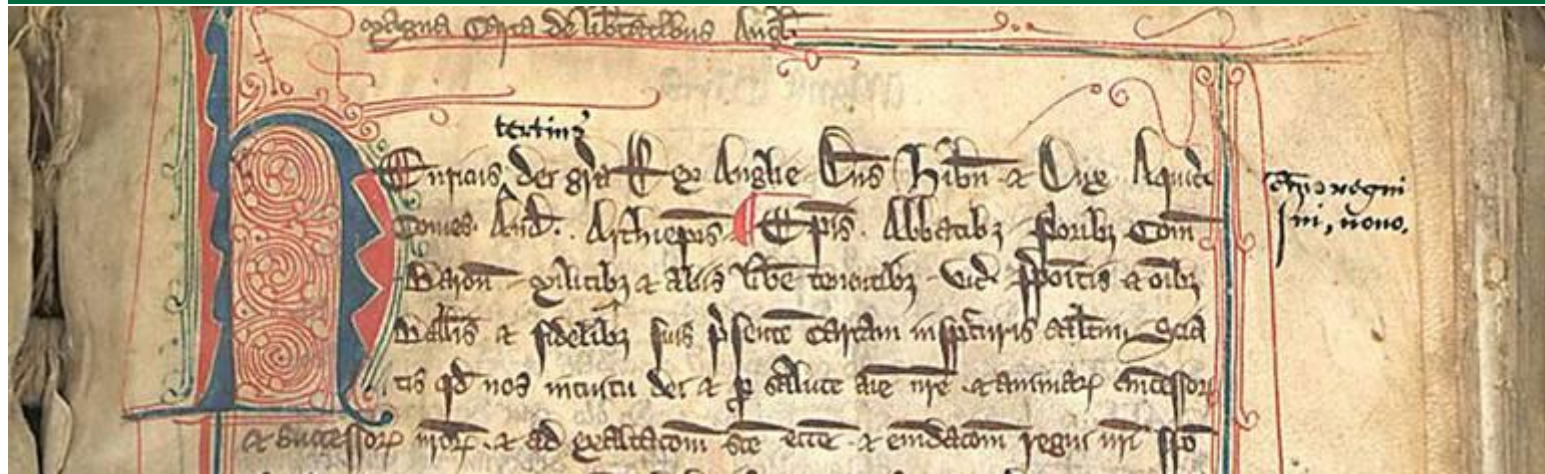 Magna Carta de lib̃tatibus Angł.
tertius
Henricus dei gr̃a Rex Anglie Dñs Hib̃n & Dux Aquit̃
Comes And̃. Archiep̃is Ep̃is. Abbatibȝ Prioribȝ Com̃
Baron̄ militibȝ & aliis lib̃e tenentibȝ Vic̃ p̃positis & oĩbȝ
Ball̃is & fidelibȝ suis p̃sentẽ Cartam insp̃cturis sałtm̃ Scia
tis qd̃ nos intuitu dei & p̱ salute aĩe nr̃e & animaꝝ añcessoꝝ
& Successoꝝ nr̃oꝝ & ad exaltac̃om sc̃e ecc̃e & emdac̃om regni nr̃i
regni
sui, nono.